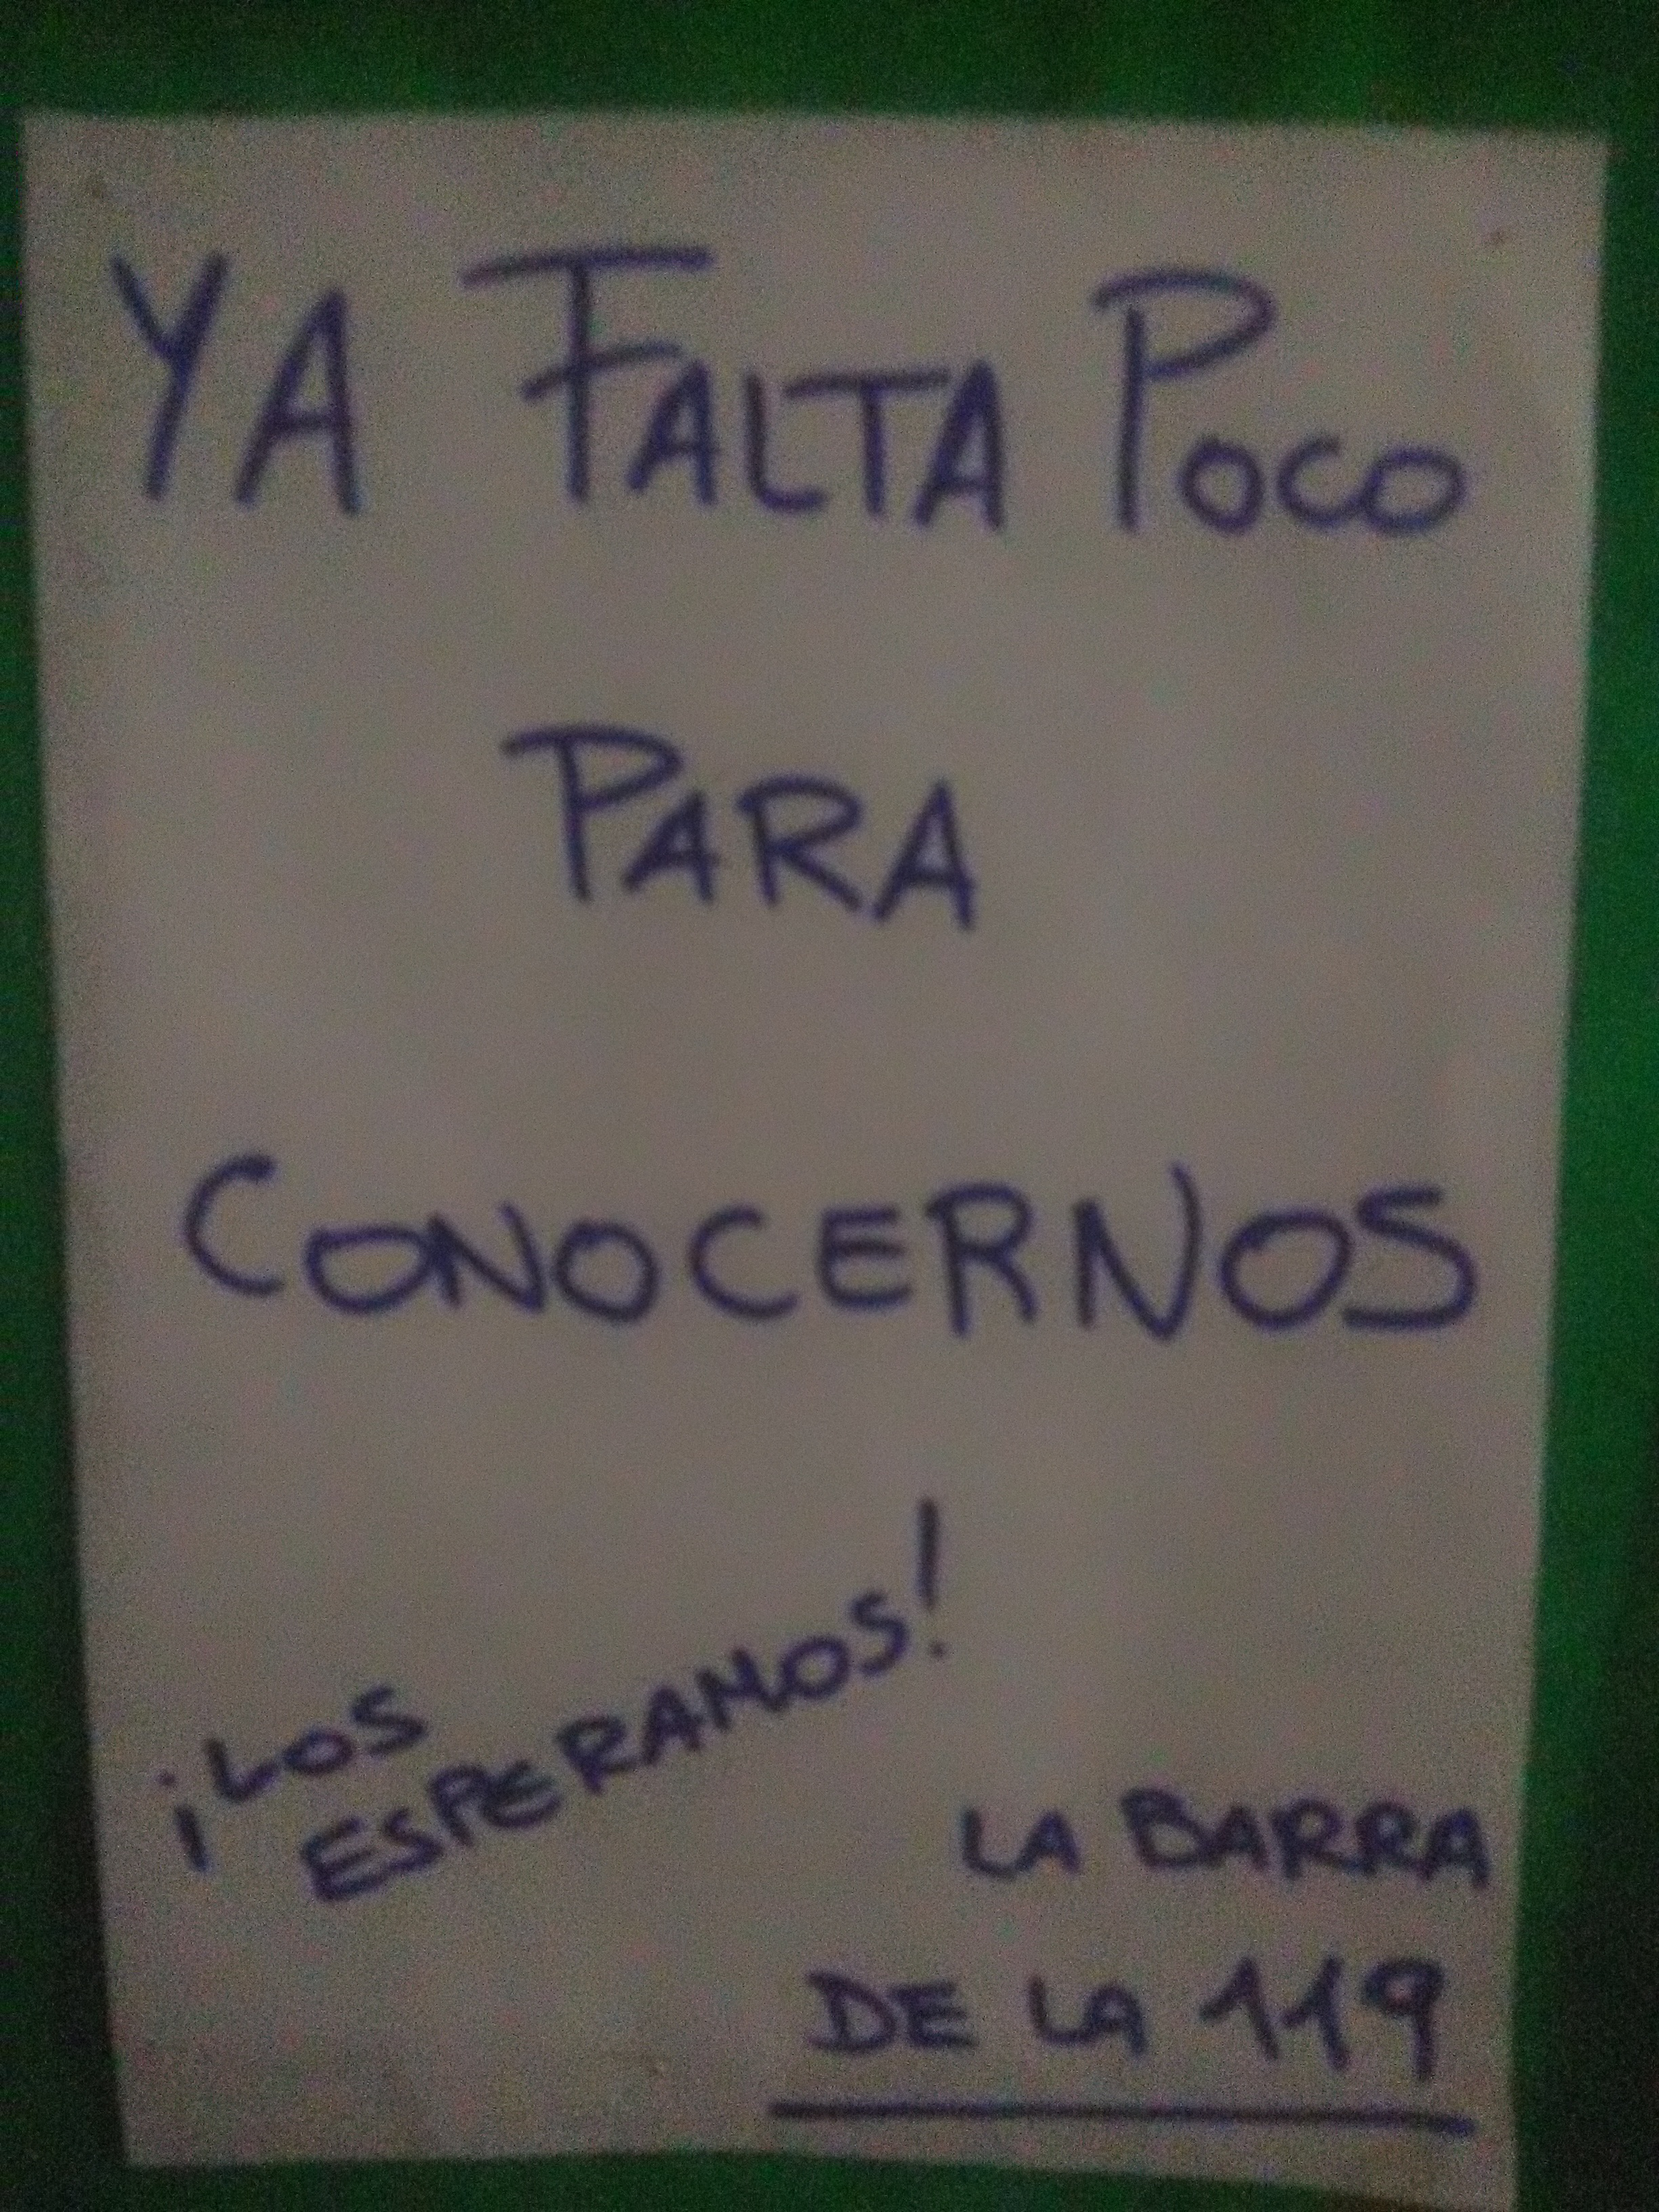 YA FALTA POCO
PARA
CONOCERNOS
¡LOS
ESPERAMOS!
LA BARRA
DE LA 119